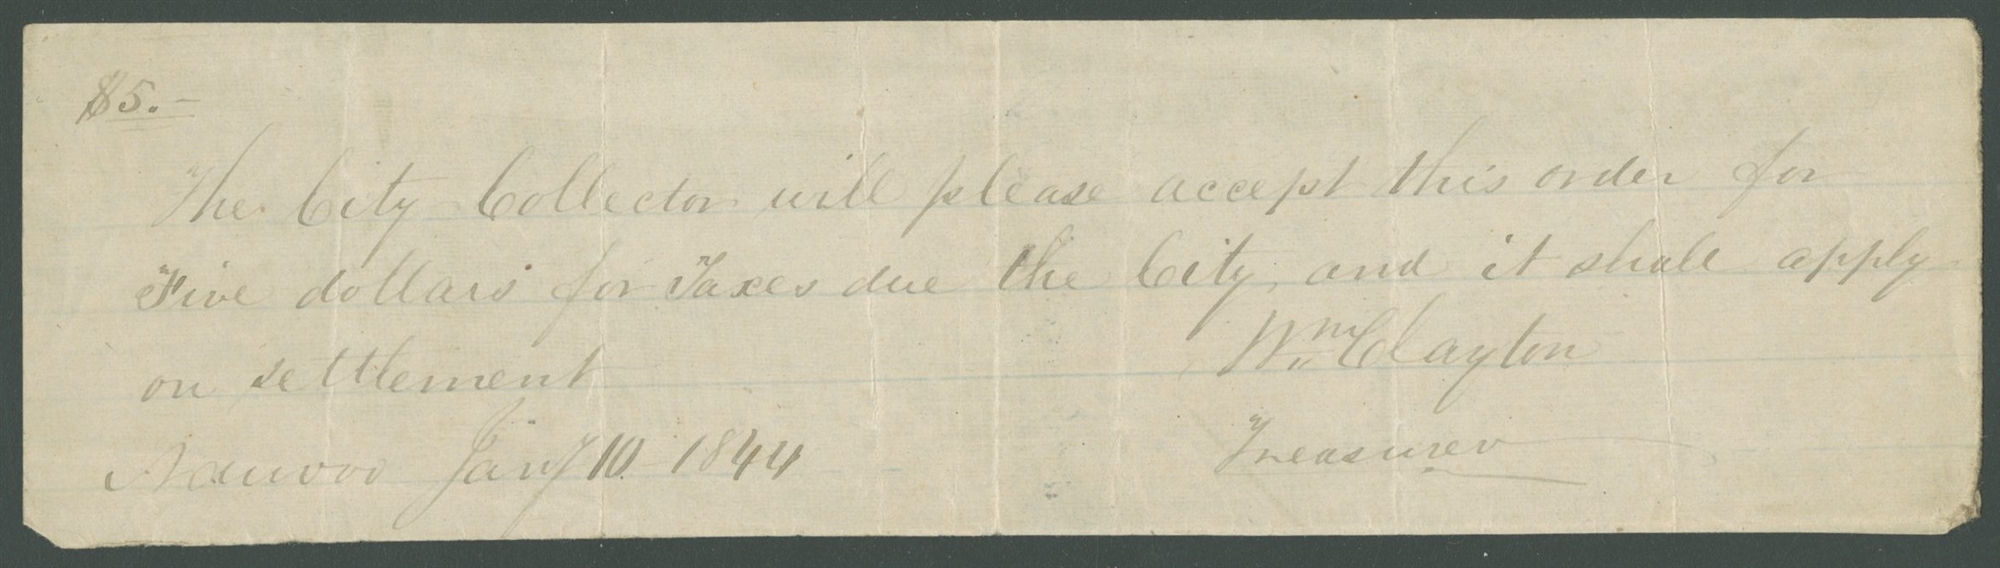 $5.–
The City Collector will please accept this order for
Five dollars for Taxes due the City, and it shall apply
on settlement
Wm Clayton
Nauvoo Jany 10 1844
Treasurer